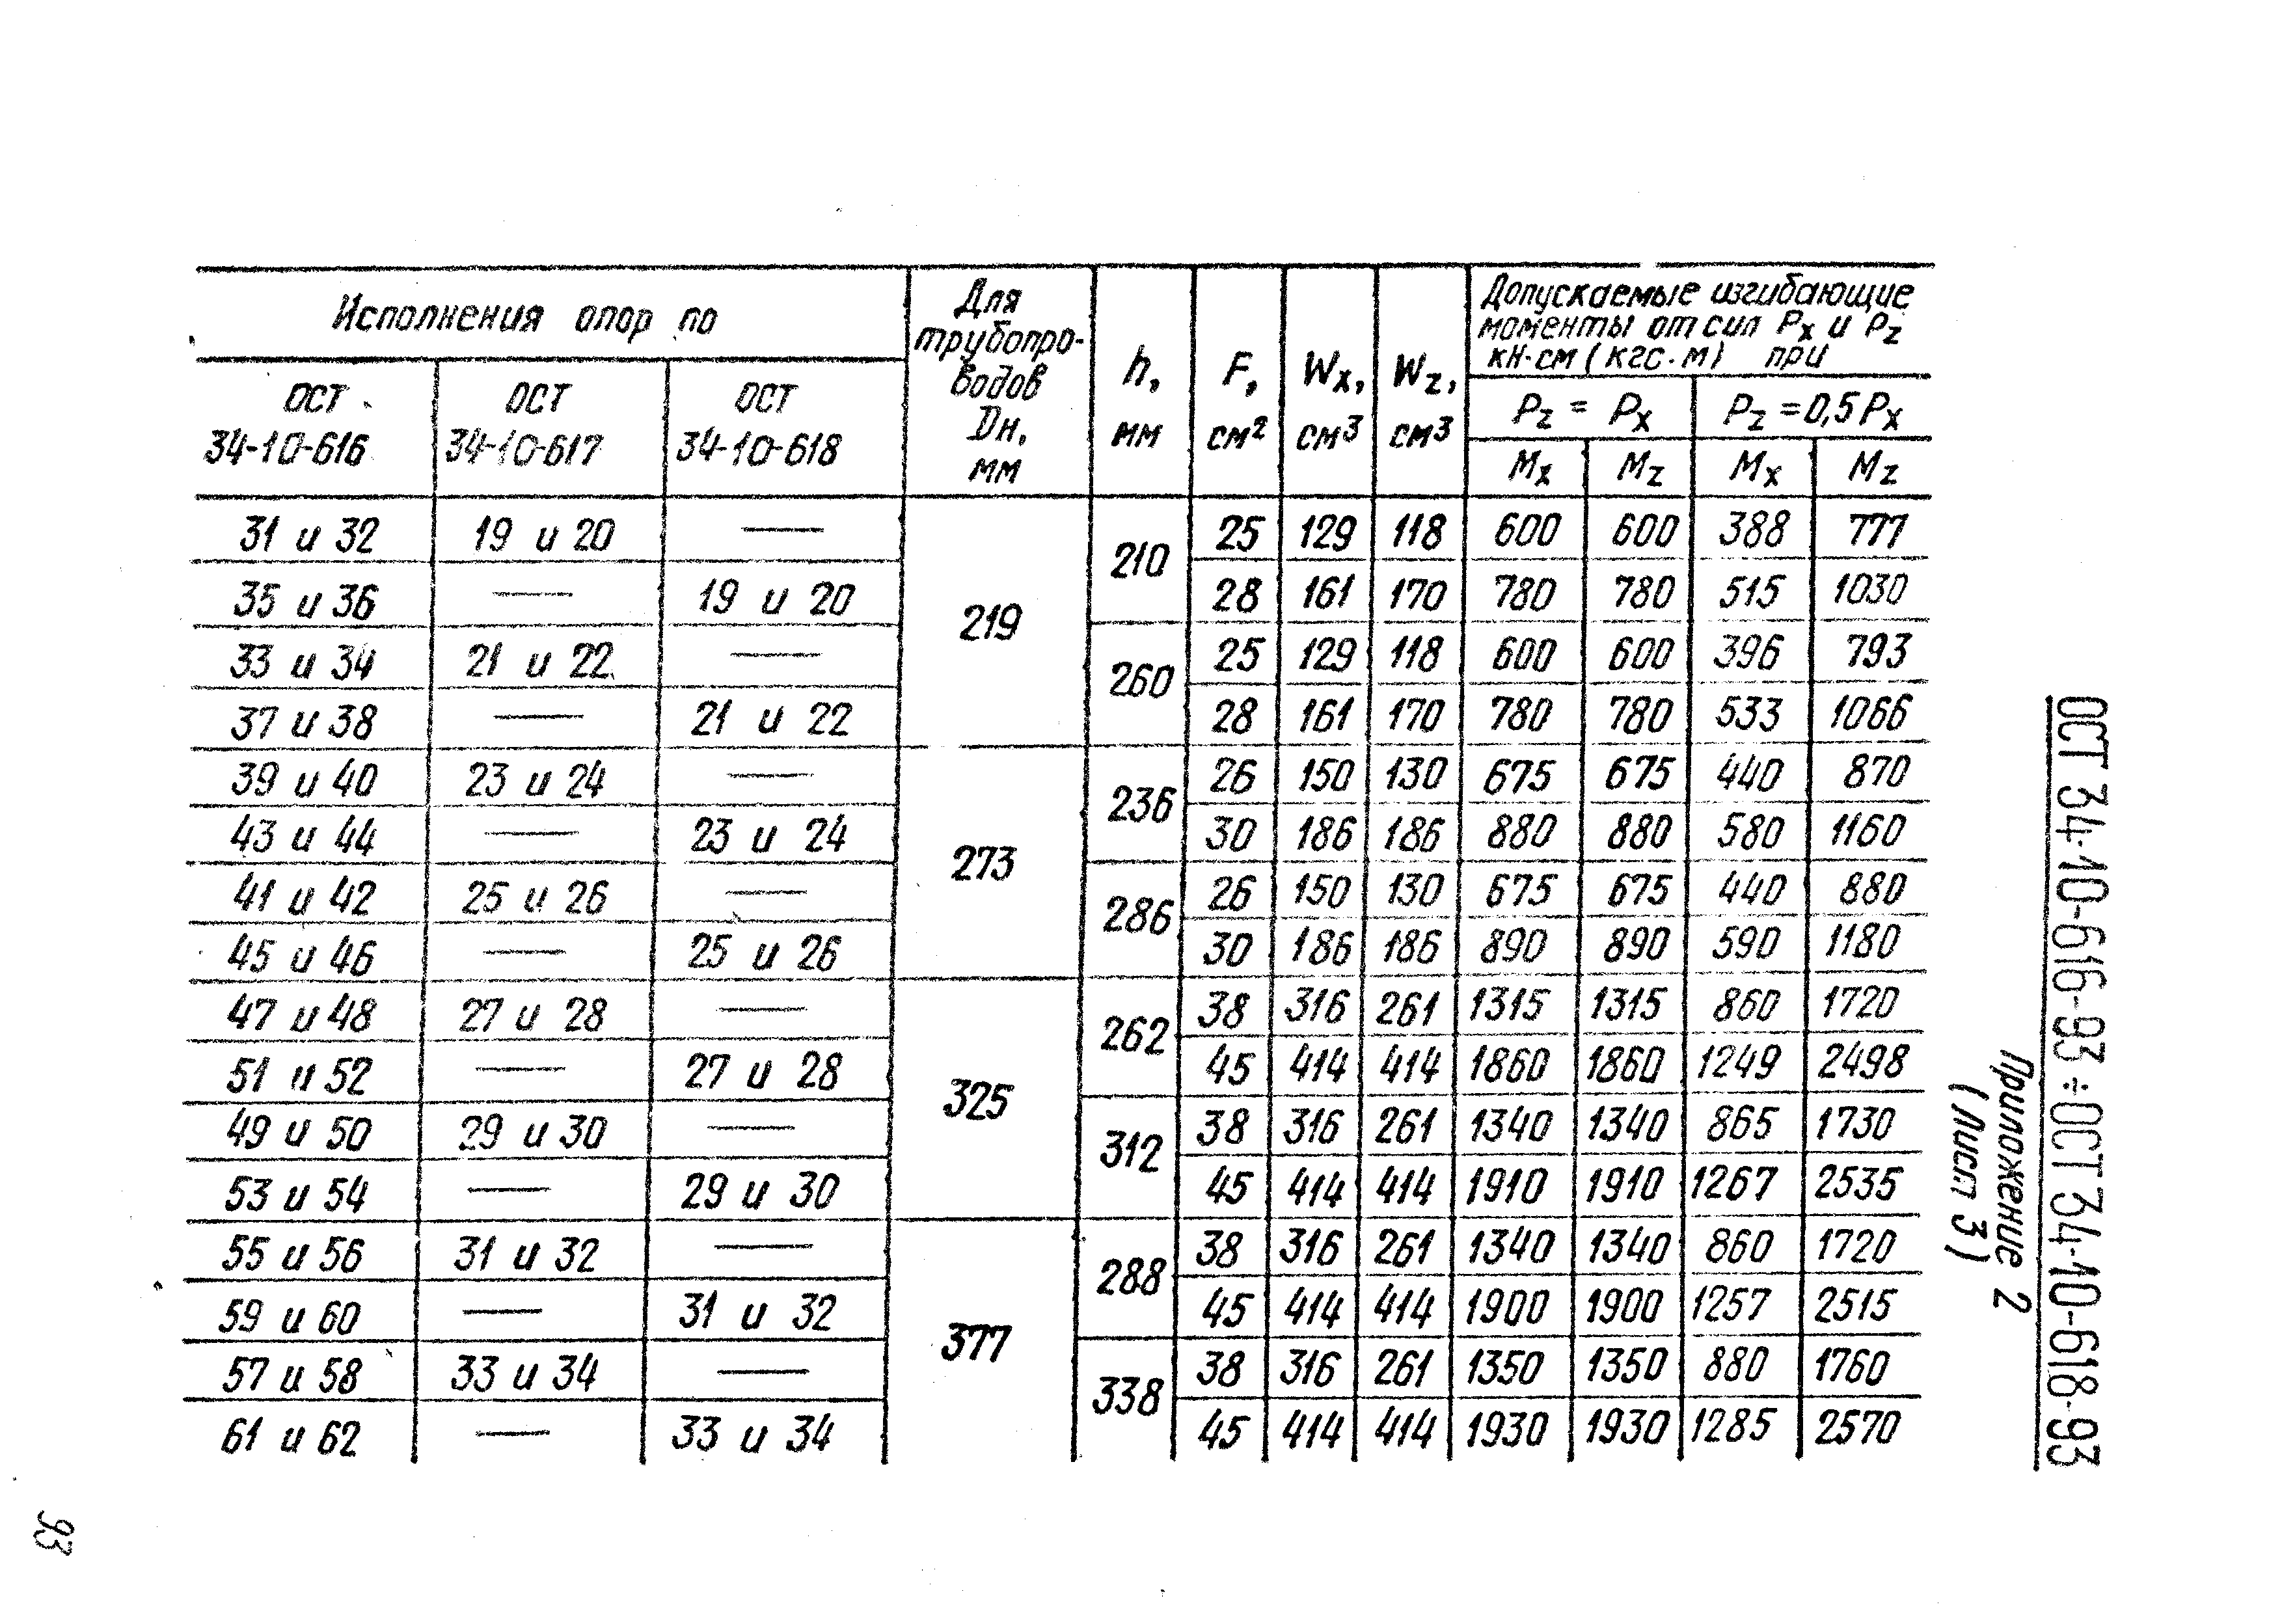 Исполнения опор по
Для трубопро-
водов
Dн,
мм
h,
мм
F,
см²
Wx,
см³
Wz,
см³
Допускаемые изгибающие
моменты от сил Px и Pz
кН·см (кгс·м) при
ОСТ
34-10-616
ОСТ
34-10-617
ОСТ
34-10-618
Pz = Px
Pz = 0,5 Px
Mx Mz Mx Mz
31 и 32 19 и 20 — 219 210 25 129 118 600 600 388 777
35 и 36 — 19 и 20 28 161 170 780 780 515 1030
33 и 34 21 и 22 — 260 25 129 118 600 600 396 793
37 и 38 — 21 и 22 28 161 170 780 780 533 1066
39 и 40 23 и 24 — 273 236 26 150 130 675 675 440 870
43 и 44 — 23 и 24 30 186 186 880 880 580 1160
41 и 42 25 и 26 — 286 26 150 130 675 675 440 880
45 и 46 — 25 и 26 30 186 186 890 890 590 1180
47 и 48 27 и 28 — 325 262 38 316 261 1315 1315 860 1720
51 и 52 — 27 и 28 45 414 414 1860 1860 1249 2498
49 и 50 29 и 30 — 312 38 316 261 1340 1340 865 1730
53 и 54 — 29 и 30 45 414 414 1910 1910 1267 2535
55 и 56 31 и 32 — 377 288 38 316 261 1340 1340 860 1720
59 и 60 — 31 и 32 45 414 414 1900 1900 1257 2515
57 и 58 33 и 34 — 338 38 316 261 1350 1350 880 1760
61 и 62 — 33 и 34 45 414 414 1930 1930 1285 2570
ОСТ 34-10-616-93 ÷ ОСТ 34-10-618-93
Приложение 2
(Лист 3)
93